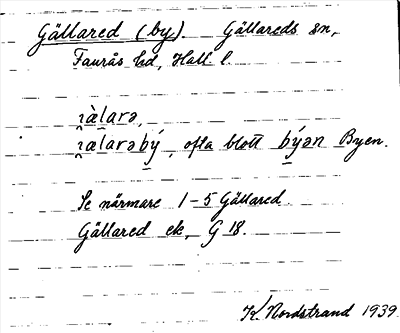 Gällared (by). Gällareds sn,
Faurås hd, Hall l.
ꞁæ̀larə,
ꞁælarəbý, ofta blott býən Byen.
Se närmare 1-5 Gällared.
Gällared ek, G 18.
K. Nordstrand 1939.